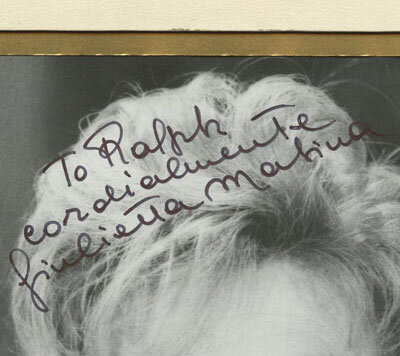 To Ralph
cordialmente
Giulietta Masina